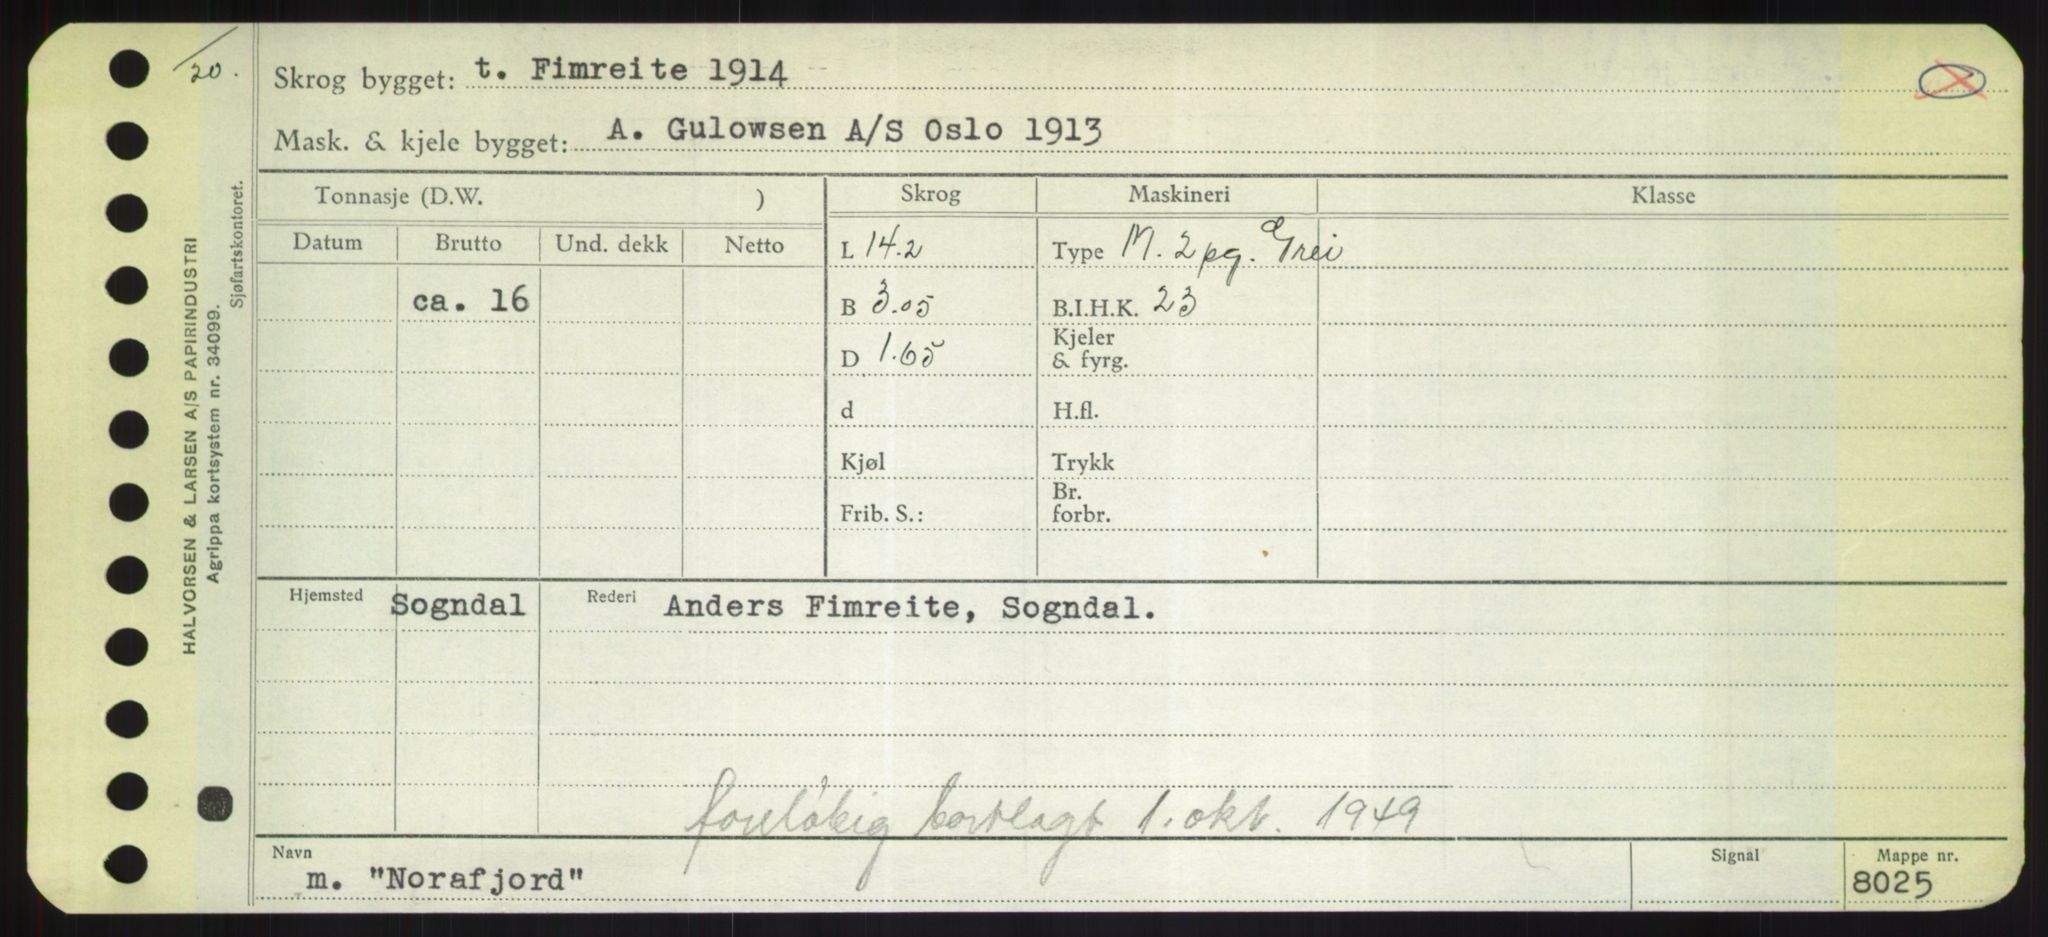 20.
Skrog bygget: t. Fimreite 1914
Mask. & kjele bygget: A. Gulowsen A/S Oslo 1913
HALVORSEN & LARSEN A/S PAPIRINDUSTRI
Agrippa kortsystem nr. 34099.
Sjøfartskontoret.
Tonnasje (D.W. ) Skrog Maskineri Klasse
Datum Brutto Und. dekk Netto
L 14.2 Type M. 2 pg. Grei
ca. 16 B 3.05 B.I.H.K. 23
D 1.65 Kjeler
& fyrg.
d H.fl.
Kjøl Trykk
Frib. S.: Br.
forbr.
Hjemsted Sogndal Rederi Anders Fimreite, Sogndal.
foreløbig bortlagt 1. okt. 1949
Navn Signal Mappe nr.
m. "Norafjord" 8025